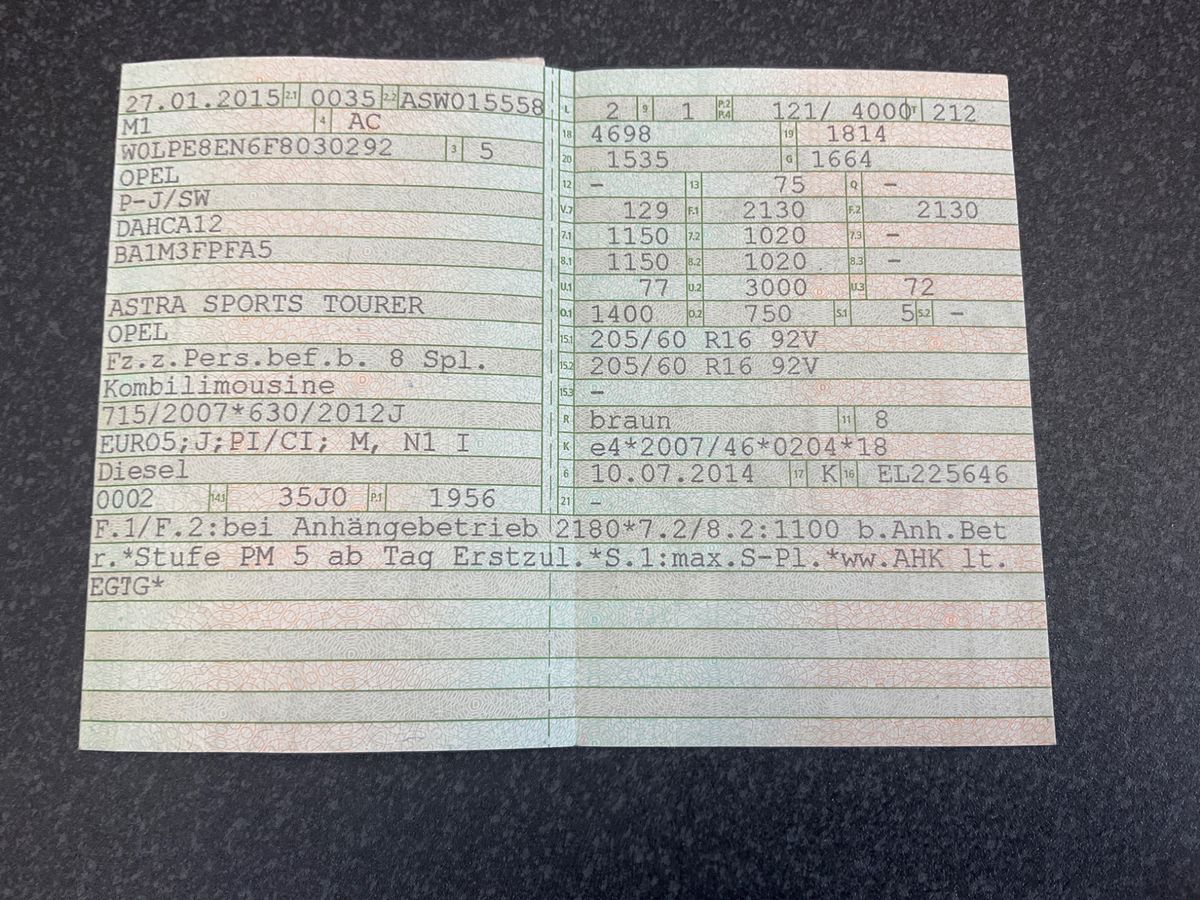 27.01.2015 2.1 0035 2.2 ASW015558
M1 4 AC
W0LPE8EN6F8030292 3 5
OPEL
P-J/SW
DAHCA12
BA1M3FPFA5
ASTRA SPORTS TOURER
OPEL
Fz.z.Pers.bef.b. 8 Spl.
Kombilimousine
715/2007*630/2012J
EURO5;J;PI/CI; M, N1 I
Diesel
0002 14.1 35J0 P.1 1956
L 2 9 1 P.2 P.4 121/ 4000 T 212
18 4698 19 1814
20 1535 G 1664
12 – 13 75 Q –
V.7 129 F.1 2130 F.2 2130
7.1 1150 7.2 1020 7.3 –
8.1 1150 8.2 1020 8.3 –
U.1 77 U.2 3000 U.3 72
O.1 1400 O.2 750 S.1 5 S.2 –
15.1 205/60 R16 92V
15.2 205/60 R16 92V
15.3 –
R braun 11 8
K e4*2007/46*0204*18
6 10.07.2014 17 K 16 EL225646
21 –
F.1/F.2:bei Anhängebetrieb 2180*7.2/8.2:1100 b.Anh.Bet
r.*Stufe PM 5 ab Tag Erstzul.*S.1:max.S-Pl.*ww.AHK lt.
EGTG*